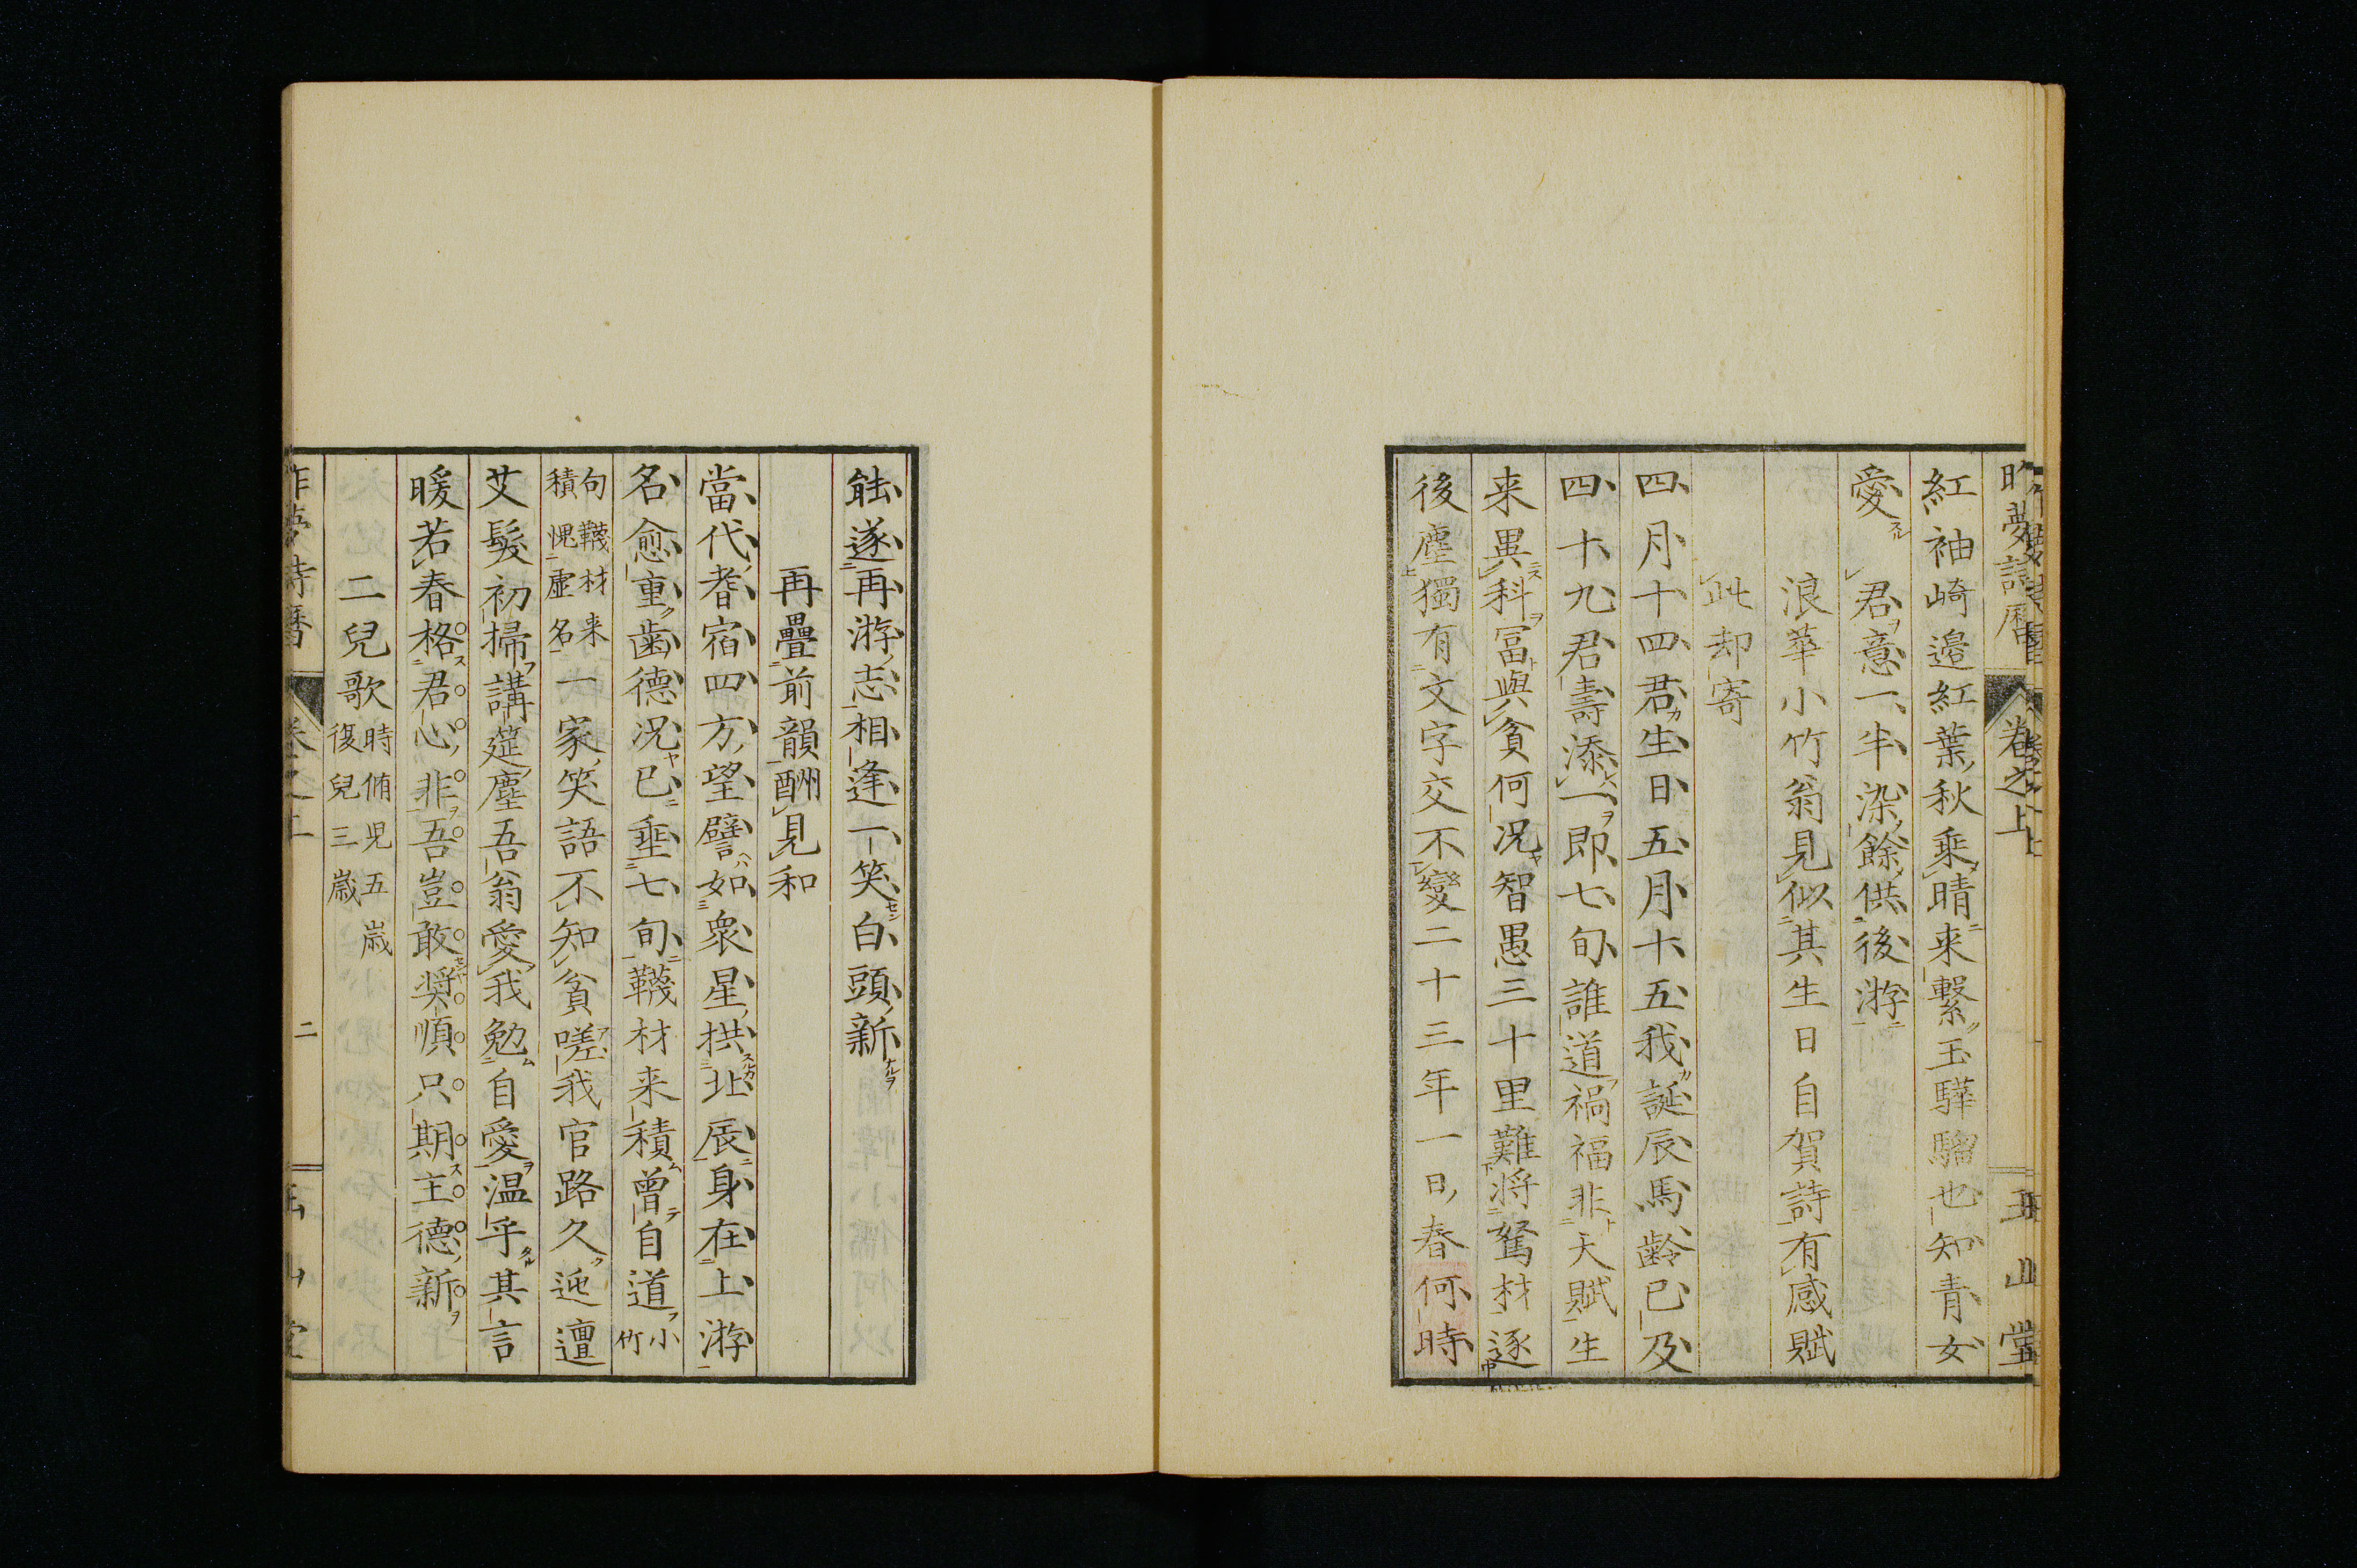 昨夢詩曆 卷之上 玉山堂
紅袖崎邉紅葉秋乘晴来繫玉驊騮也知青女
愛君意一半染餘供後游
浪華小竹翁見似其生日自賀詩有感賦
此却寄
四月十四君生日五月十五我誕辰馬齡已及
四十九君壽添一即七旬誰道禍福非天賦生
来異科冨與貧何况智愚三十里難将駑材逐
後塵獨有文字交不變二十三年一日春何時
能遂再游志相逢一笑白頭新
再疊前韻酬見和
當代耆宿四方望譬如衆星拱北辰身在上游
名愈重齒德况已垂七旬韈材来積曾自道小竹
句韈材来
積愧虚名一家笑語不知貧嗟我官路久迍邅
艾髮初掃講筵塵吾翁愛我勉自愛温乎其言
暖若春格君心非吾豈敢奨順只期主德新
二兒歌時脩児五歳
復兒三歳
昨夢詩曆 卷之上 二 玉山堂